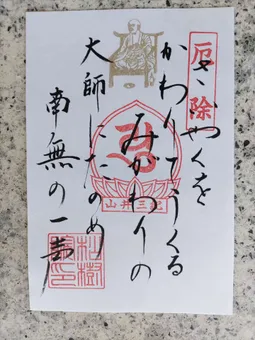 厄除
やくを
かわりてうくる
みがわりの
大師にたのめ
南無の一声